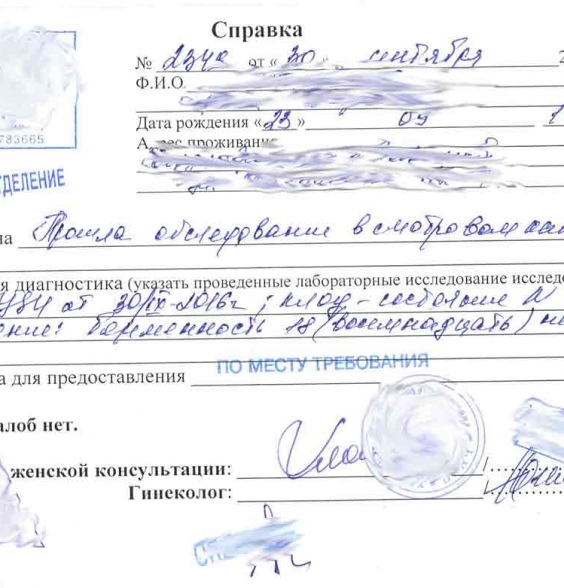 Справка
№ 234а от « 30 » сентября 2
Ф.И.О.
Дата рождения « 23 » 09 1
783665
ТДЕЛЕНИЕ
на Прошла обследование в смотровом
я диагностика (указать проведенные лабораторные исследование исслед
УЗИ от 30/IX-2016г ; плод - состояние N
ение: беременность 18 (восемнадцать) не
а для предоставления ПО МЕСТУ ТРЕБОВАНИЯ
алоб нет.
женской консультации:
Гинеколог: